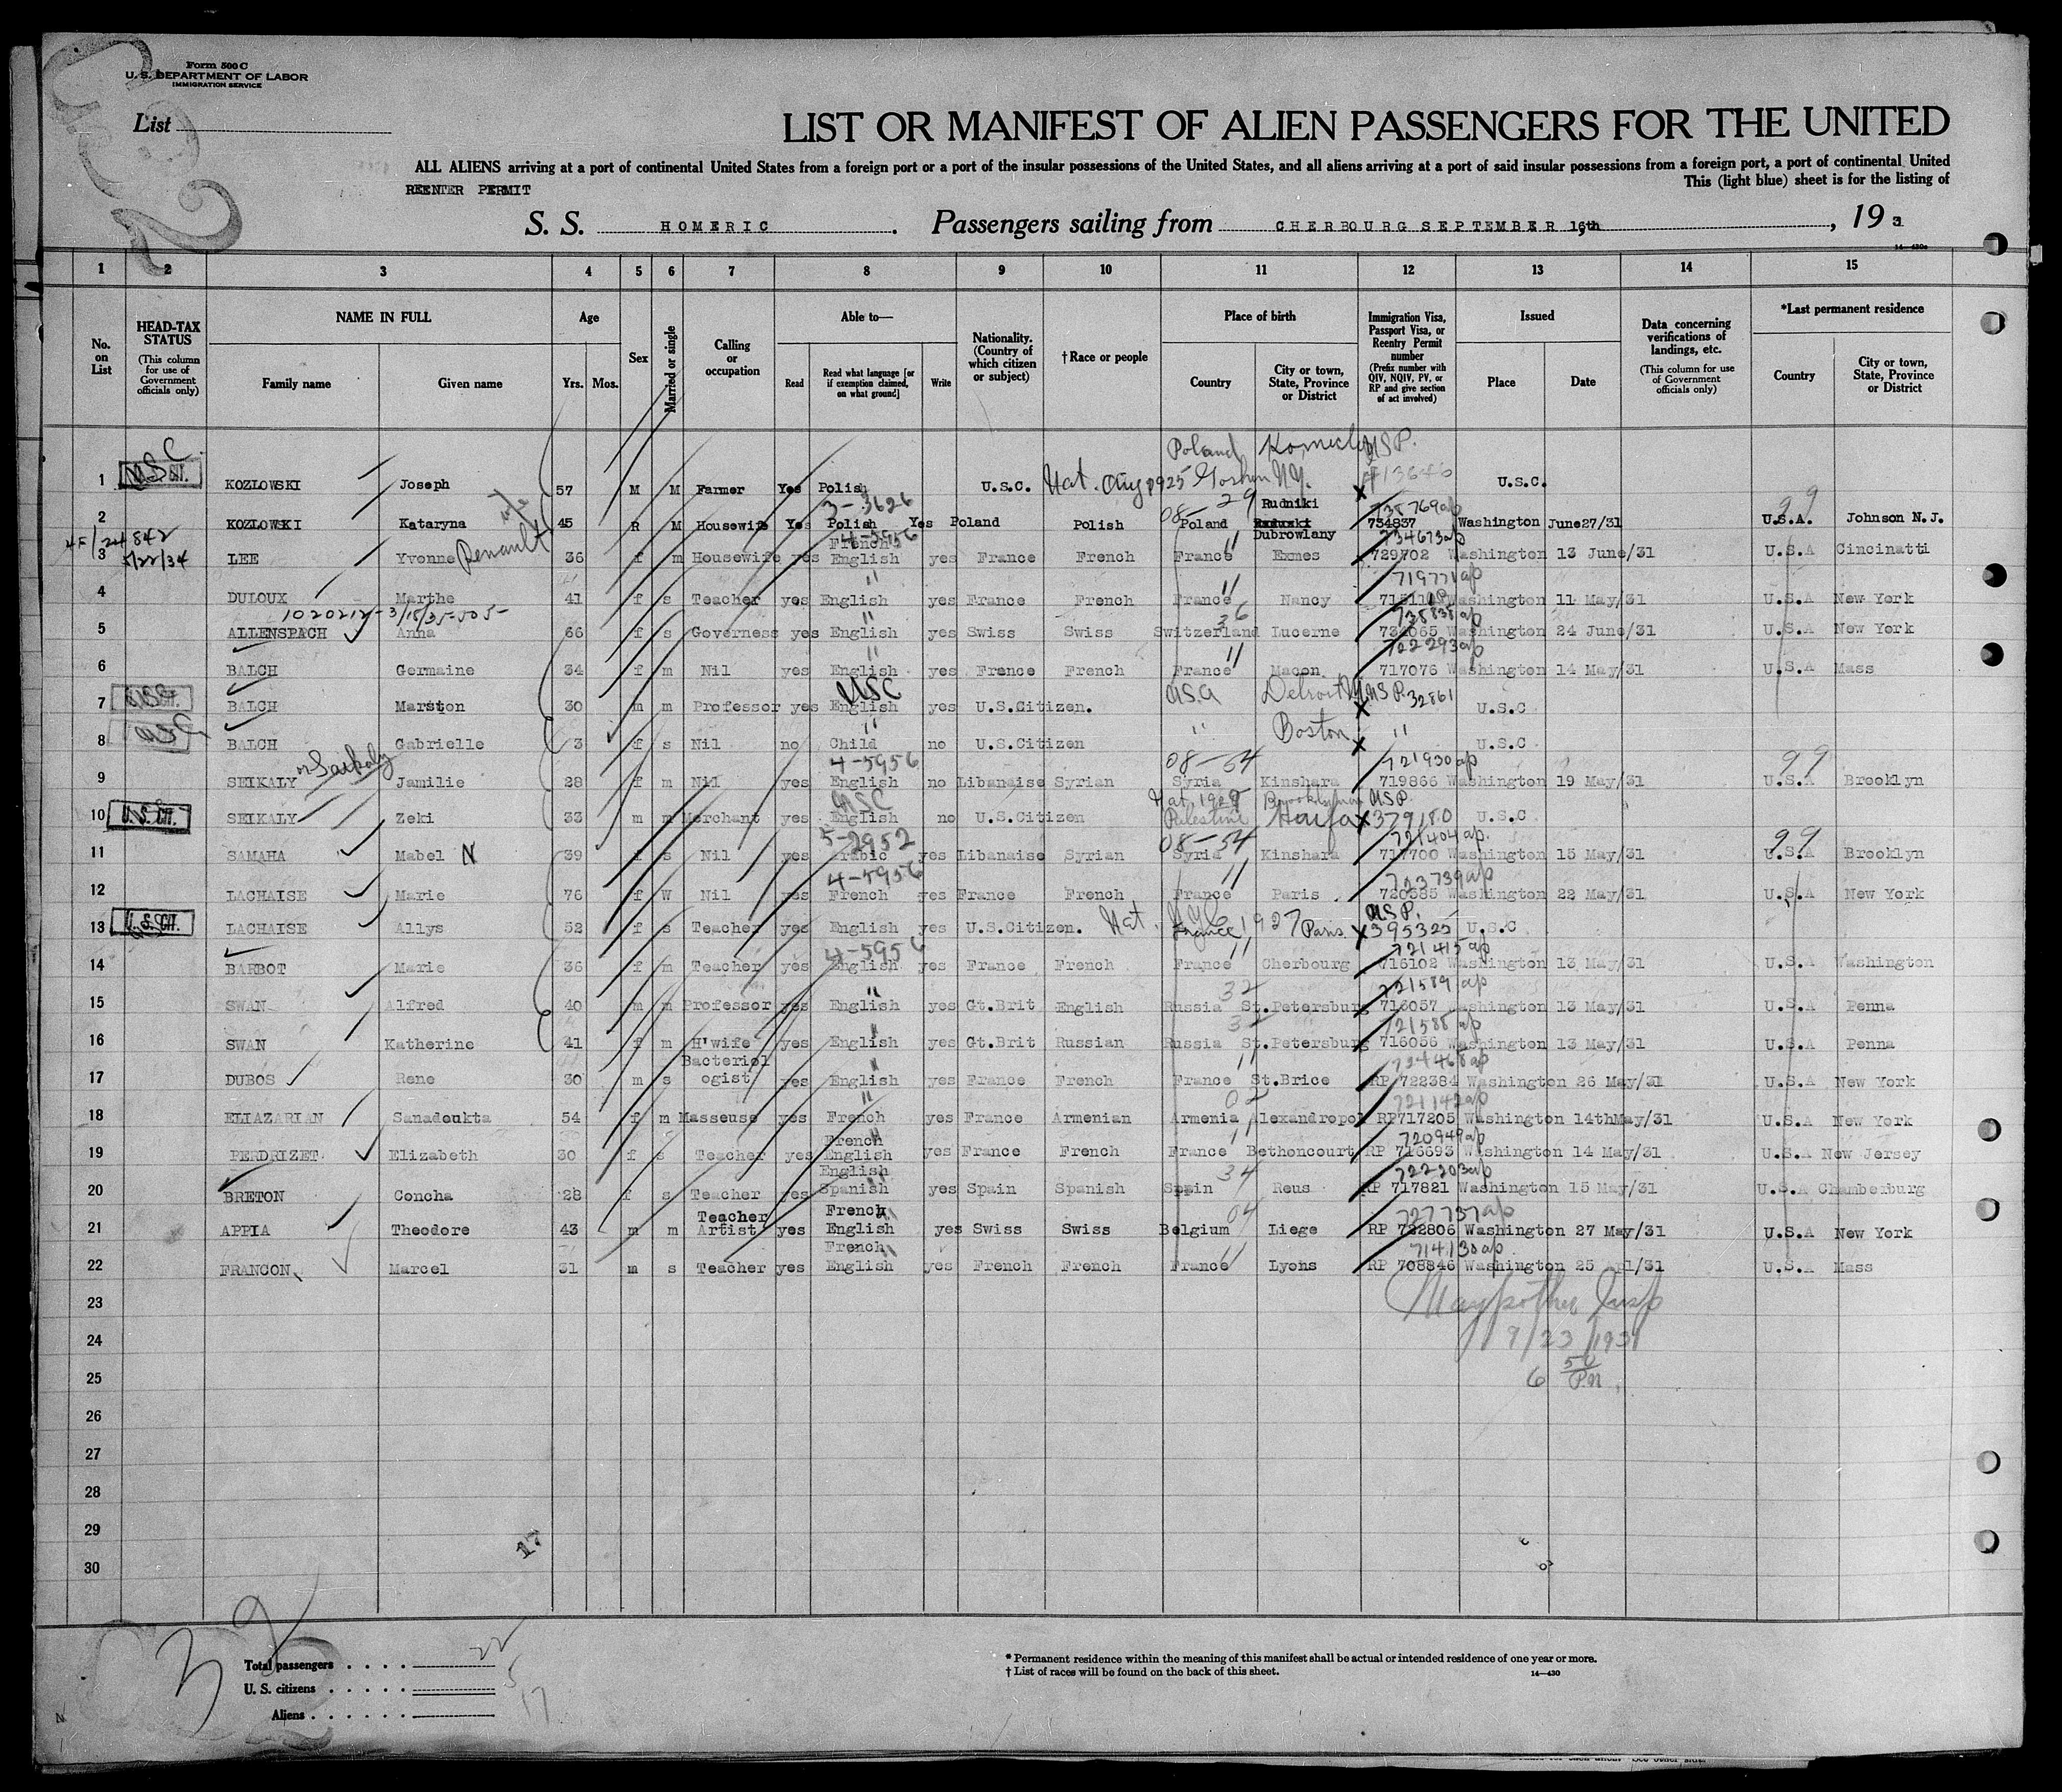 Form 500 C
U. S. DEPARTMENT OF LABOR
IMMIGRATION SERVICE
List
LIST OR MANIFEST OF ALIEN PASSENGERS FOR THE UNITED
ALL ALIENS arriving at a port of continental United States from a foreign port or a port of the insular possessions of the United States, and all aliens arriving at a port of said insular possessions from a foreign port, a port of continental United
This (light blue) sheet is for the listing of
REENTER PERMIT
S. S. HOMERIC. Passengers sailing from CHERBOURG SEPTEMBER 16th, 193
1 2 3 4 5 6 7 8 9 10 11 12 13 14 15
No. on List
HEAD-TAX STATUS
(This column for use of Government officials only)
NAME IN FULL
Family name
Given name
Age
Yrs. Mos.
Sex
Married or single
Calling or occupation
Able to—
Read
Read what language [or if exemption claimed, on what ground]
Write
Nationality. (Country of which citizen or subject)
†Race or people
Place of birth
Country
City or town, State, Province or District
Immigration Visa, Passport Visa, or Reentry Permit number
(Prefix number with QIV, NQIV, PV, or RP and give section of act involved)
Issued
Place
Date
Data concerning verifications of landings, etc.
(This column for use of Government officials only)
*Last permanent residence
Country
City or town, State, Province or District
Poland USP.
1 USC KOZLOWSKI Joseph 57 M M Farmer Yes Polish U.S.C. Nat. Aug 1925 Goshen N.Y. #13646 U.S.C.
3-3626 08-29 Rudniki 735769 99
2 KOZLOWSKI Kataryna 45 R M Housewife Yes Polish Yes Poland Polish Poland Dubrowlany 734837 Washington June27/31 U.S.A. Johnson N.J.
French 4-5956 11 734673
3 5/22/34 LEE Yvonne Renault 36 f m Housewife yes English yes France French France Exmes 729702 Washington 13 June/31 U.S.A Cincinatti
" 11 719771
4 DULOUX Marthe 41 f s Teacher yes English yes France French France Nancy Washington 11 May/31 U.S.A New York
1020212-3/15/35-505- " 36 735838
5 ALLENSPACH Anna 66 f s Governess yes English yes Swiss Swiss Switzerland Lucerne 732065 Washington 24 June/31 U.S.A New York
" 11 722293
6 BALCH Germaine 34 f m Nil yes English yes France French France Macon 717076 Washington 14 May/31 U.S.A Mass
USC USA Detroit USP. 32861
7 BALCH Marston 30 m m Professor yes English yes U.S.Citizen. U.S.C
" " Boston "
8 USC BALCH Gabrielle 3 f s Nil no Child no U.S.Citizen U.S.C
or Saikaly 4-5956 08-54 721930 99
9 SEIKALY Jamilie 28 f m Nil yes English no Libanaise Syrian Syria Kinshara 719866 Washington 19 May/31 U.S.A Brooklyn
USC Nat. Brooklyn USP.
10 U.S. CIT. SEIKALY Zeki 33 m m Merchant yes English no U.S.Citizen Palestine Haifa 379180 U.S.C
5-2952 08-54 721404 99
11 SAMAHA Mabel N 39 f s Nil yes Arabic yes Libanaise Syrian Syria Kinshara 717700 Washington 15 May/31 U.S.A Brooklyn
4-5956 11 723739
12 LACHAISE Marie 76 f W Nil yes French yes France French France Paris 720385 Washington 22 May/31 U.S.A New York
13 U.S. CIT. LACHAISE Allys 52 f s Teacher yes English yes U.S.Citizen. Nat. 1927 France Paris USP. 395325 U.S.C
4-5956 11 721415
14 BARBOT Marie 36 f m Teacher yes English yes France French France Cherbourg 716102 Washington 13 May/31 U.S.A Washington
" 32 721589
15 SWAN Alfred 40 m m Professor yes English yes Gt.Brit English Russia St.Petersburg 716057 Washington 13 May/31 U.S.A Penna
" 32 721588
16 SWAN Katherine 41 f m H'wife yes English yes Gt.Brit Russian Russia St.Petersburg 716056 Washington 13 May/31 U.S.A Penna
" 11 724468
17 DUBOS Rene 30 m s Bacteriologist yes English yes France French France St.Brice RP 722384 Washington 26 May/31 U.S.A New York
" 721142
18 ELIAZARIAN Sanadoukta 54 f m Masseuse yes French yes France Armenian Armenia Alexandropol RP717205 Washington 14thMay/31 U.S.A New York
French " 11 720949
19 PERDRIZET Elizabeth 30 f s Teacher yes English yes France French France Bethoncourt RP 716693 Washington 14 May/31 U.S.A New Jersey
English 34 722203
20 BRETON Concha 28 f s Teacher yes Spanish yes Spain Spanish Spain Reus RP 717821 Washington 15 May/31 U.S.A Chambenburg
Teacher French 04 727737
21 APPIA Theodore 43 m m Artist yes English yes Swiss Swiss Belgium Liege RP 722806 Washington 27 May/31 U.S.A New York
French 11 714130
22 FRANCON Marcel 31 m s Teacher yes English yes French French France Lyons RP 708846 Washington 25 Apl/31 U.S.A Mass
23
Insp
24 9/23/1931
25 6 50 P.M.
26
27
28
29
30
17
Total passengers 22
U. S. citizens 5
Aliens 17
* Permanent residence within the meaning of this manifest shall be actual or intended residence of one year or more.
† List of races will be found on the back of this sheet.
14—430